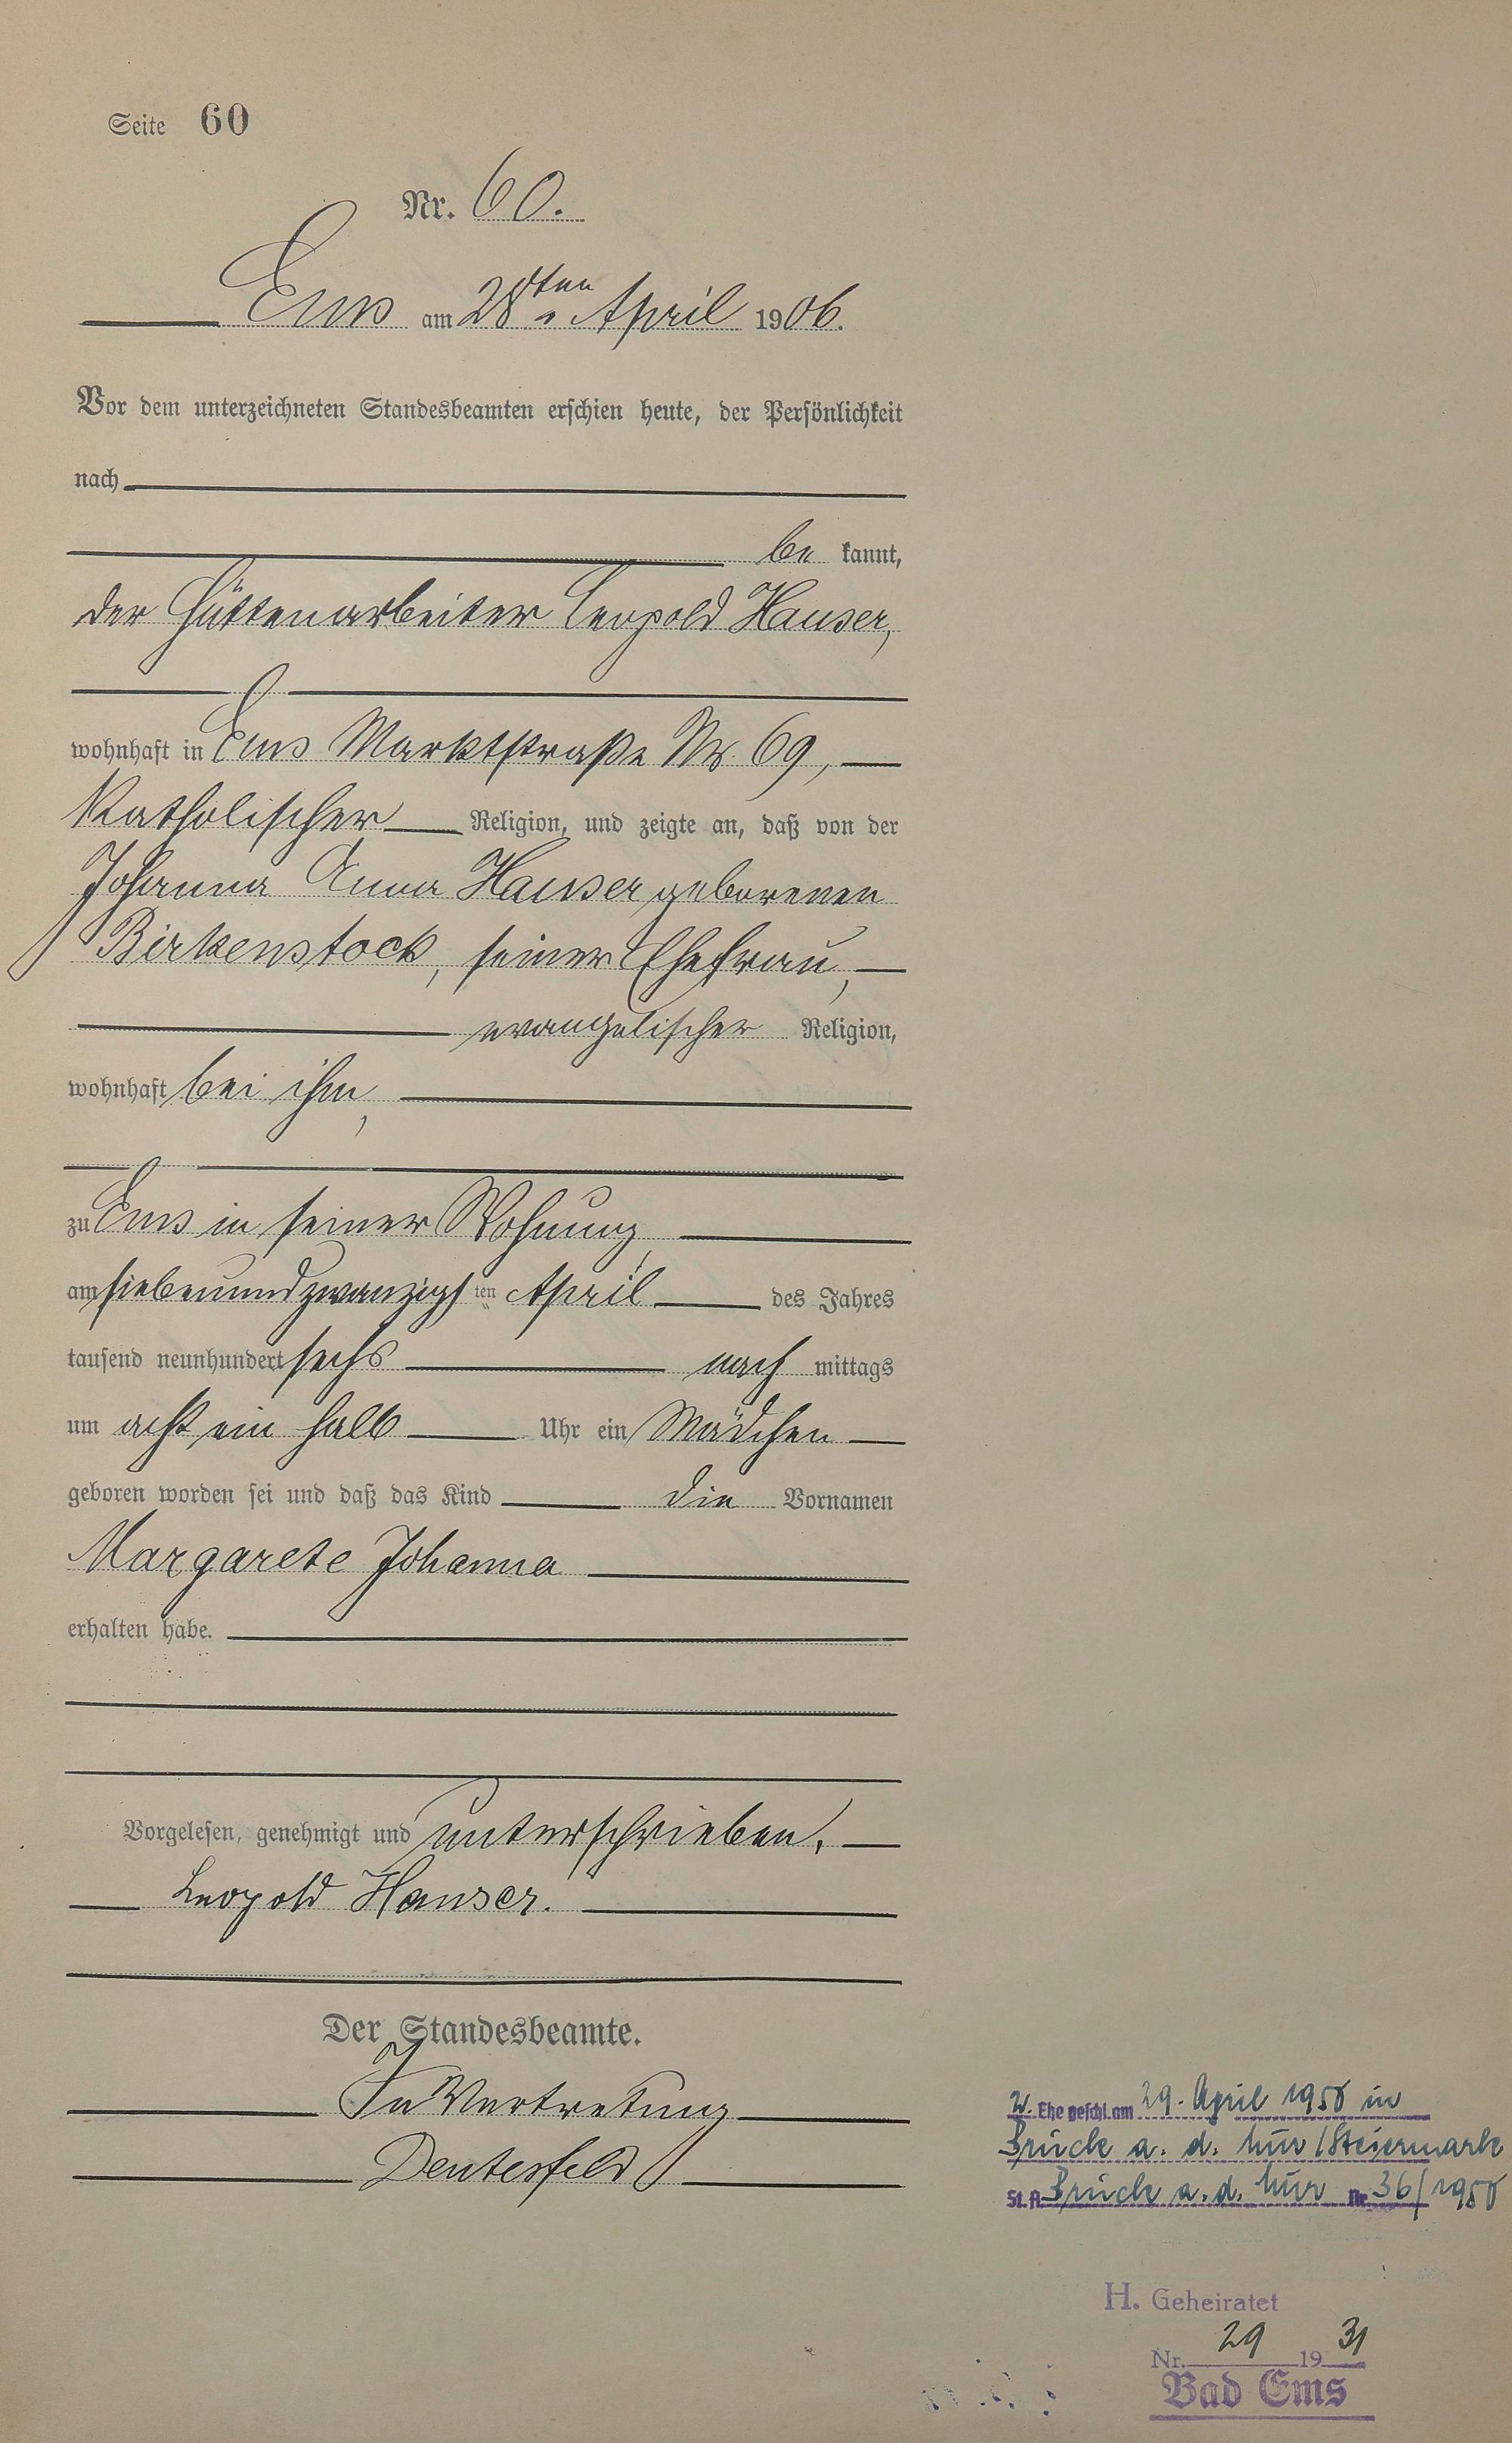 Seite 60
Nr. 60.
Ems am 28ten April 1906.
Vor dem unterzeichneten Standesbeamten erschien heute, der Persönlichkeit
nach
be kannt,
der Hüttenarbeiter Leopold Hauser,
wohnhaft in Ems Marktstraße Nr. 69,
katholischer Religion, und zeigte an, daß von der
Johanna Anna Hauser geborenen
Birkenstock, seiner Ehefrau,
evangelischer Religion,
wohnhaft bei ihm,
zu Ems in seiner Wohnung,
am siebenundzwanzigsten April des Jahres
tausend neunhundert sechs nach mittags
um acht ein halb Uhr ein Mädchen
geboren worden sei und daß das Kind die Vornamen
Margarete Johanna
erhalten habe.
Vorgelesen, genehmigt und unterschrieben.
Leopold Hauser.
Der Standesbeamte.
In Vertretung
Deutesfeld
2. Ehe geschl. am 29. April 1950 in
Bruck a. d. Mur / Steiermark
St. A. Bruck a. d. Mur Nr. 36/1950
H. Geheiratet
Nr. 29 1931
Bad Ems